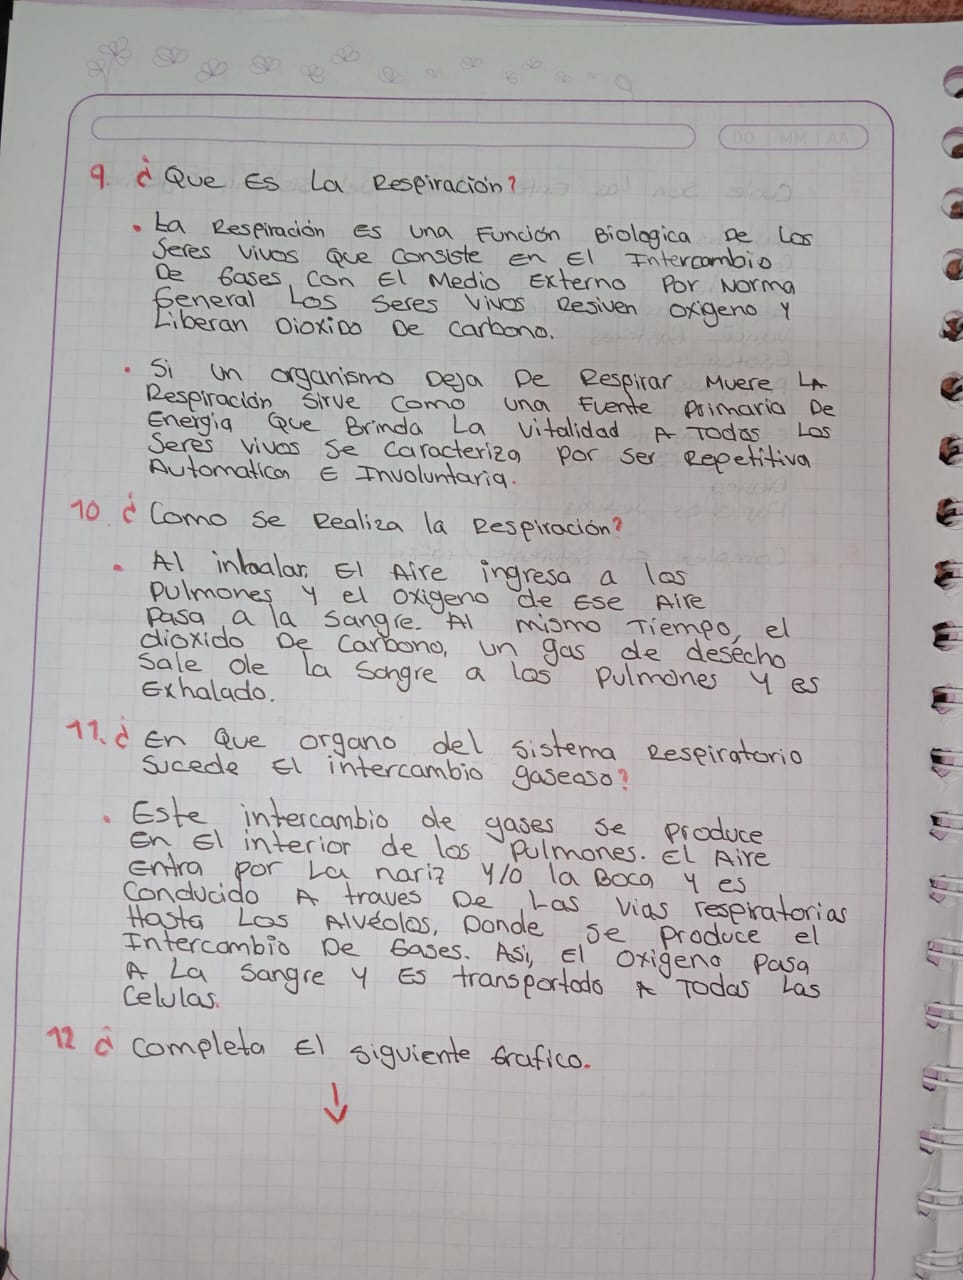 DD MM AA
9. ¿Que Es La Respiración?
• La Respiración es una Función Biologica De Los
Seres vivos Que consiste en El Intercambio
De Gases, con El Medio Externo Por Norma
General Los Seres vivos Resiven oxigeno y
Liberan Dioxido De carbono.
• Si un organismo Deja De Respirar Muere LA
Respiración sirve como una Fuente primaria De
Energia Que Brinda La vitalidad A Todos Los
Seres vivos se caracteriza por ser Repetitiva
Automatica E Involuntaria.
10. ¿Como se Realiza la Respiración?
• Al inhalar, El Aire ingresa a los
pulmones y el oxigeno de Ese Aire
pasa a la sangre. Al mismo Tiempo, el
dioxido De Carbono, un gas de desecho
sale de la sangre a los pulmones y es
Exhalado.
11. ¿En Que organo del sistema Respiratorio
sucede El intercambio gaseoso?
• Este intercambio de gases se produce
En El interior de los pulmones. El Aire
entra por La nariz y/o la Boca y es
conducido A traves De Las vias respiratorias
Hasta Los Alvéolos, Donde se produce el
Intercambio De Gases. Asi, El oxigeno pasa
A La sangre y Es transportado A Todas Las
Celulas.
12 ¿ completa El siguiente Grafico.